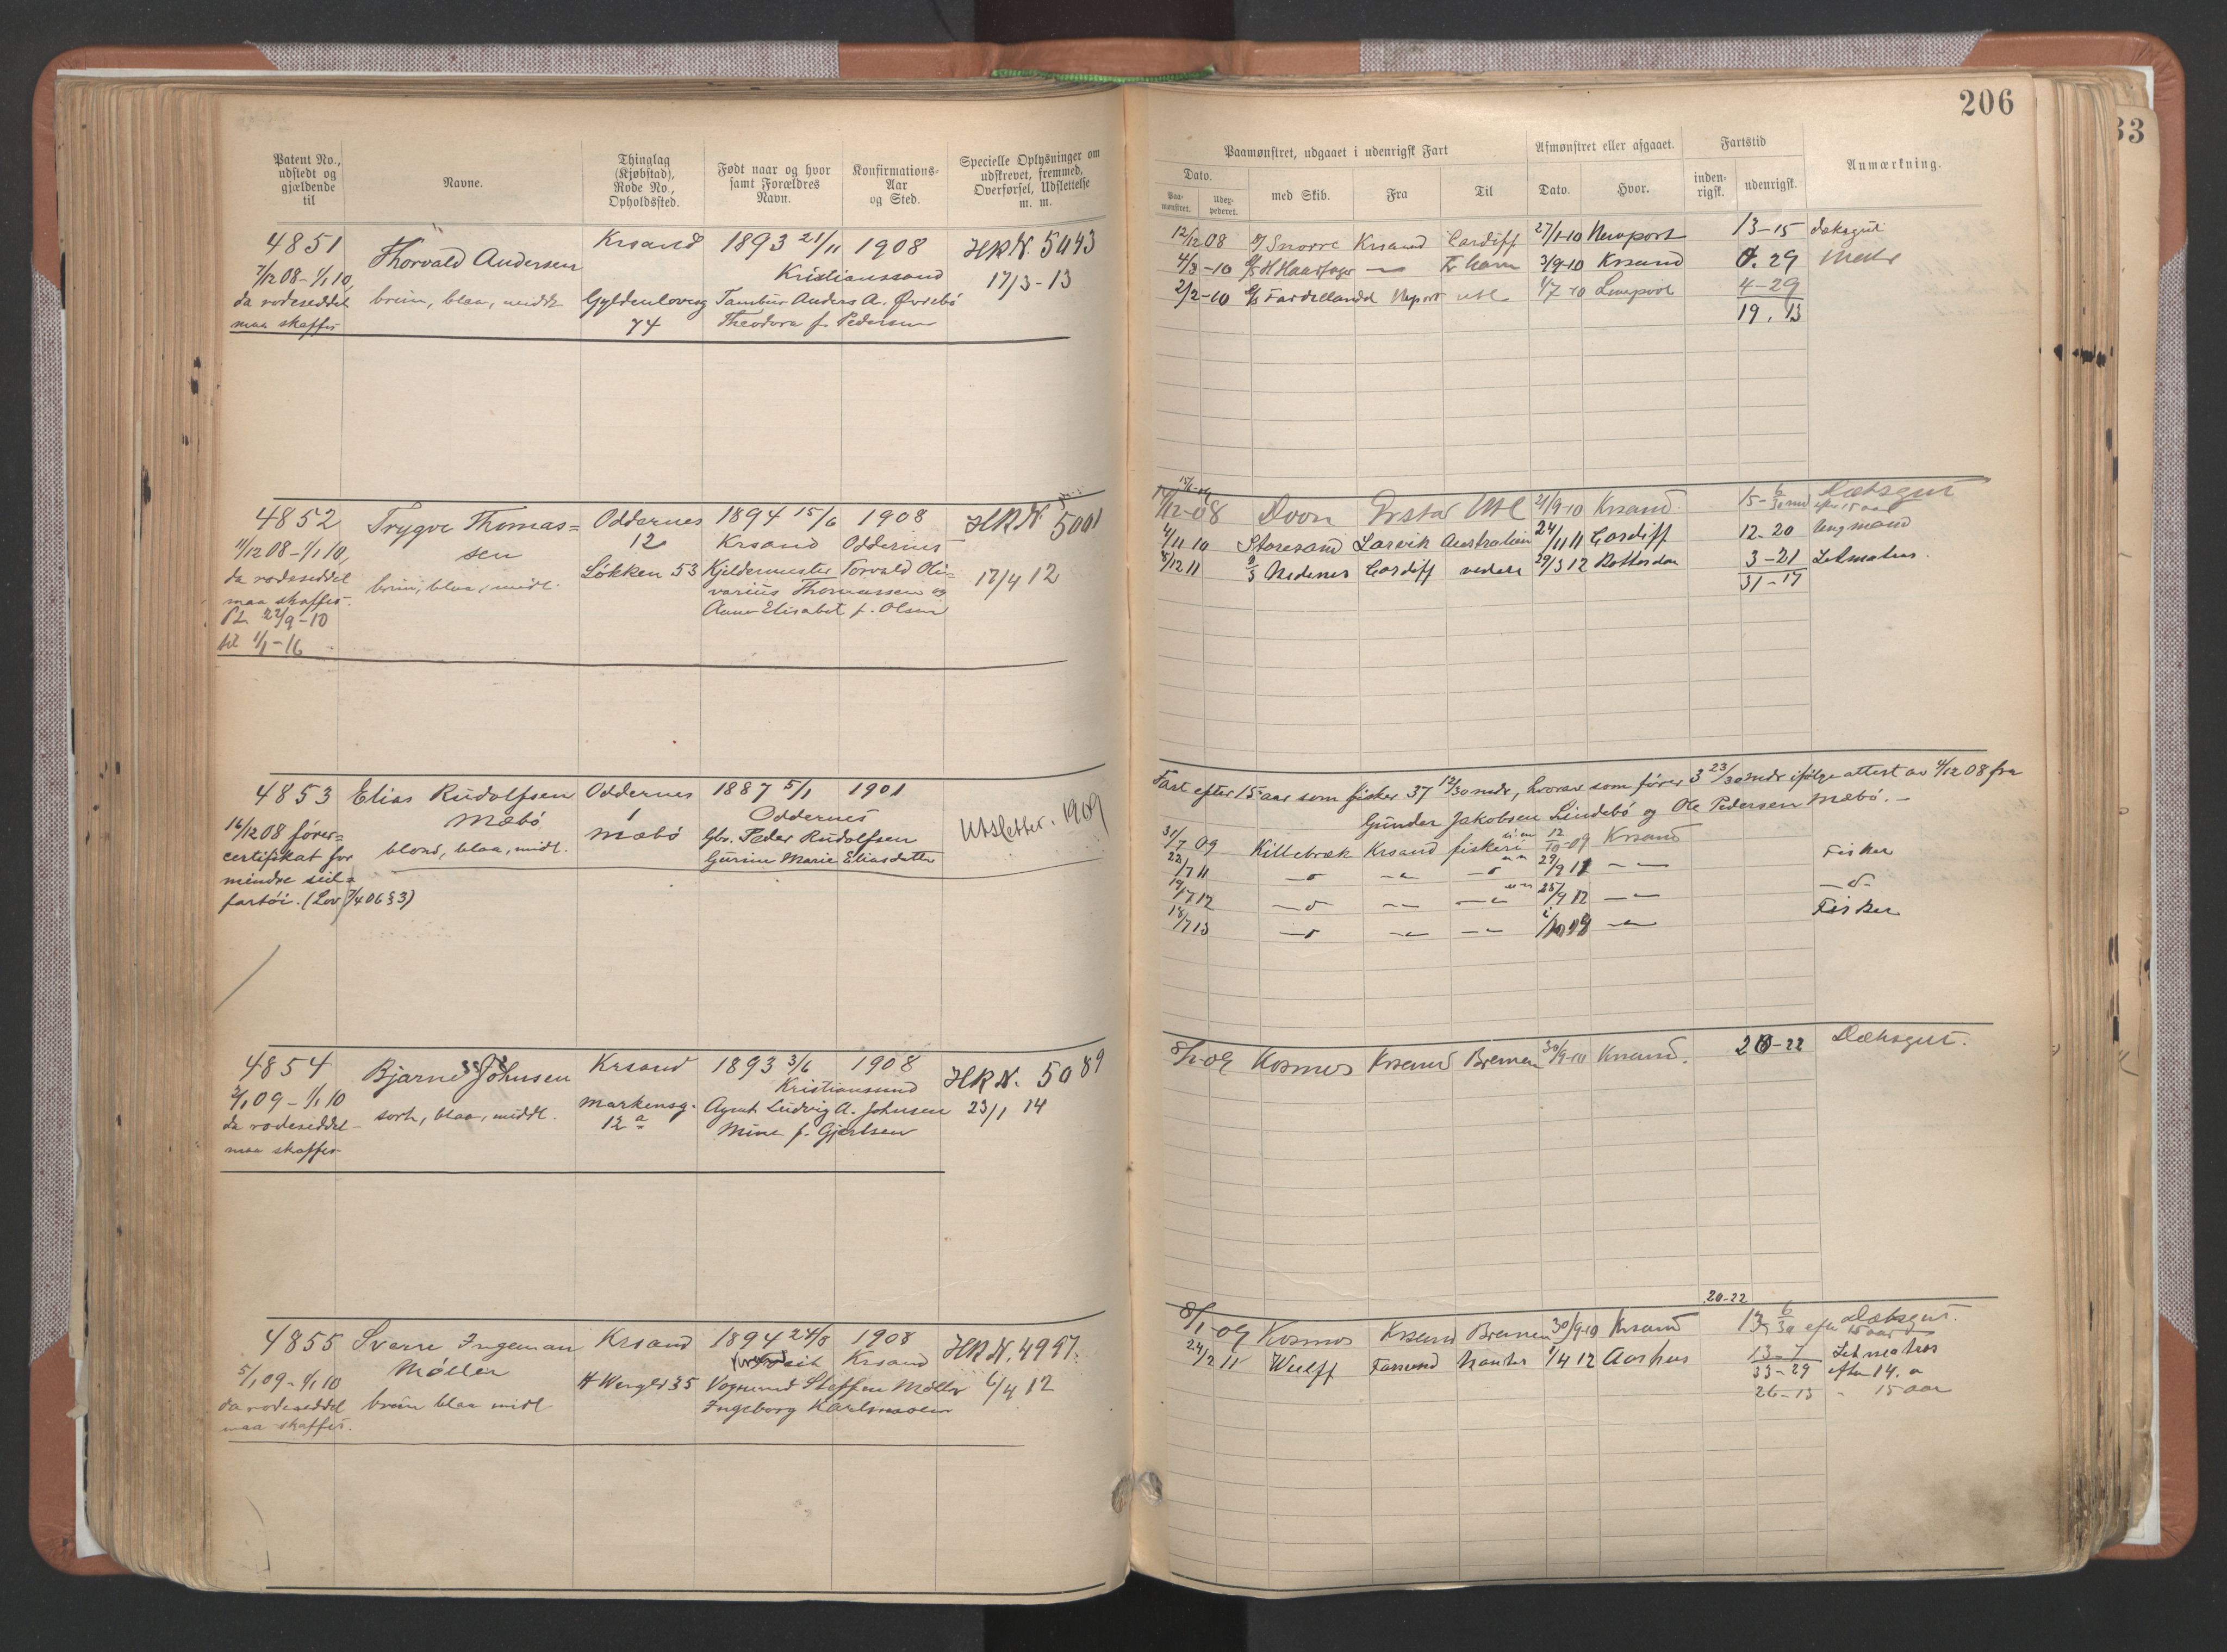 206
33
Patent No., udstedt og gjældende til
Navne.
Thinglag (Kjøbstad), Rode No., Opholdssted.
Født naar og hvor samt Forældres Navn.
Konfirmations-Aar og Sted.
Specielle Oplysninger om udskrevet, fremmed, Overførsel, Udslettelse m. m.
Paamønstret, udgaaet i udenrigsk Fart
Afmønstret eller afgaaet.
Fartstid
Anmærkning.
Dato.
med Skib.
Fra
Til
Dato.
Hvor.
inden-rigsk.
udenrigsk.
Paa-mønstret.
Udex-pederet.
4851
Thorvald Andersen
Krsand 1893 21/11 1908
HRN. 5443
7/12 08 - 1/1 10,
Kristianssand
17/3 - 13
da rodeseddel
brun, blaa, middl
Gyldenlovesg
Tambur Anders A. Øvsebö
maa skaffes
74
Theodora f. Pedersen
12/12 08 Snorre Krsand Cardiff 27/1-10 Newport 13-15 Dæksgut
4/3 -10 Haarfager 3/9-10 Krsand
2/2-10 4-29
19. 13
4852 Trygve Thomas= Oddernes 1894 15/6 1908 HRN 5001
sen 12 Krsand Oddernes
11/12 08 - 1/1 10,
da rodeseddel
brun, blaa, midl.
Løkken 53 Kjeldermester Torvald Oli=
17/4 12
maa skaffes
varius Thomassen og
Pt. 22/9-10
Anne Elisabet f. Olsen
til 1/1-16
Dvon Utl 21/9-10 Krsand. Dæksgut
4/11 10 Storesand Larvik Australien 24/11 11 Cardiff 12-20 Ungmand
8/12 11 Nedenes Cardiff 29/3 12 Rotterdam 3-21 Letmatros.
31-17
4853 Elias Rudolfsen Oddernes 1887 5/1 1901
Mæbö 1 Oddernes
16/12 08 fører=
Mæbö
Gbr. Peder Rudolfsen
Utslettet. 1909
certifikat for
blond, blaa, midl.
Gurine Marie Eliasdatter
mindre seil=
fartöi. (Lov 7/4 06 § 3)
Fart efter 15 aar som fisker 37 12/30 mdr, hvorav som förer 3 23/30 mdr ifölge attest av 4/12 08 fra
Gunder Jakobsen Lindebö og Ole Pedersen Mæbö. -
31/7 09 Killebræk Krsand fiskeri 12/10-09 Krsand
22/7 11 —o— —"— —o— 29/9 11 —"— Fisker
19/7 12 —o— —"— —"— 25/9 12 —"— —o—
18/7 13 —o— —"— —"— —"— Fisker
4854 Bjarne Johnsen Krsand 1893 3/6 1908 HRN. 5089
Kristianssund
2/1 09 - 1/1 10
sort, blaa, middl.
Markensg. Agent Ludvig A. Johnsen 23/1 14
da rodeseddel
12 a
Mine f. Gjertsen
maa skaffes
8/1-09 Kosmos Krsand Bremen 30/9-10 Krsand. 20-22 Dæksgut.
4855 Sverre Ingeman Krsand 1894 24/8 1908 HRN. 4997.
Møller Krsand
5/1 09 - 1/1 10
H Wergld 35 Vognmand Steffen Møller 6/4 12
da rodeseddel
brun blaa midl
Ingeborg Karlsmoen
maa skaffes.
20-22
8/1-09 Kosmos Krsand Bremen 30/9-10 Krsand 13 6/30 efter 15 aar Dæksgut.
24/2 11 Wulff Farsund Nantes 1/4 12 Aarhus 13-7 Letmatros
33-29 efter 14. a
26-13 " 15 aar